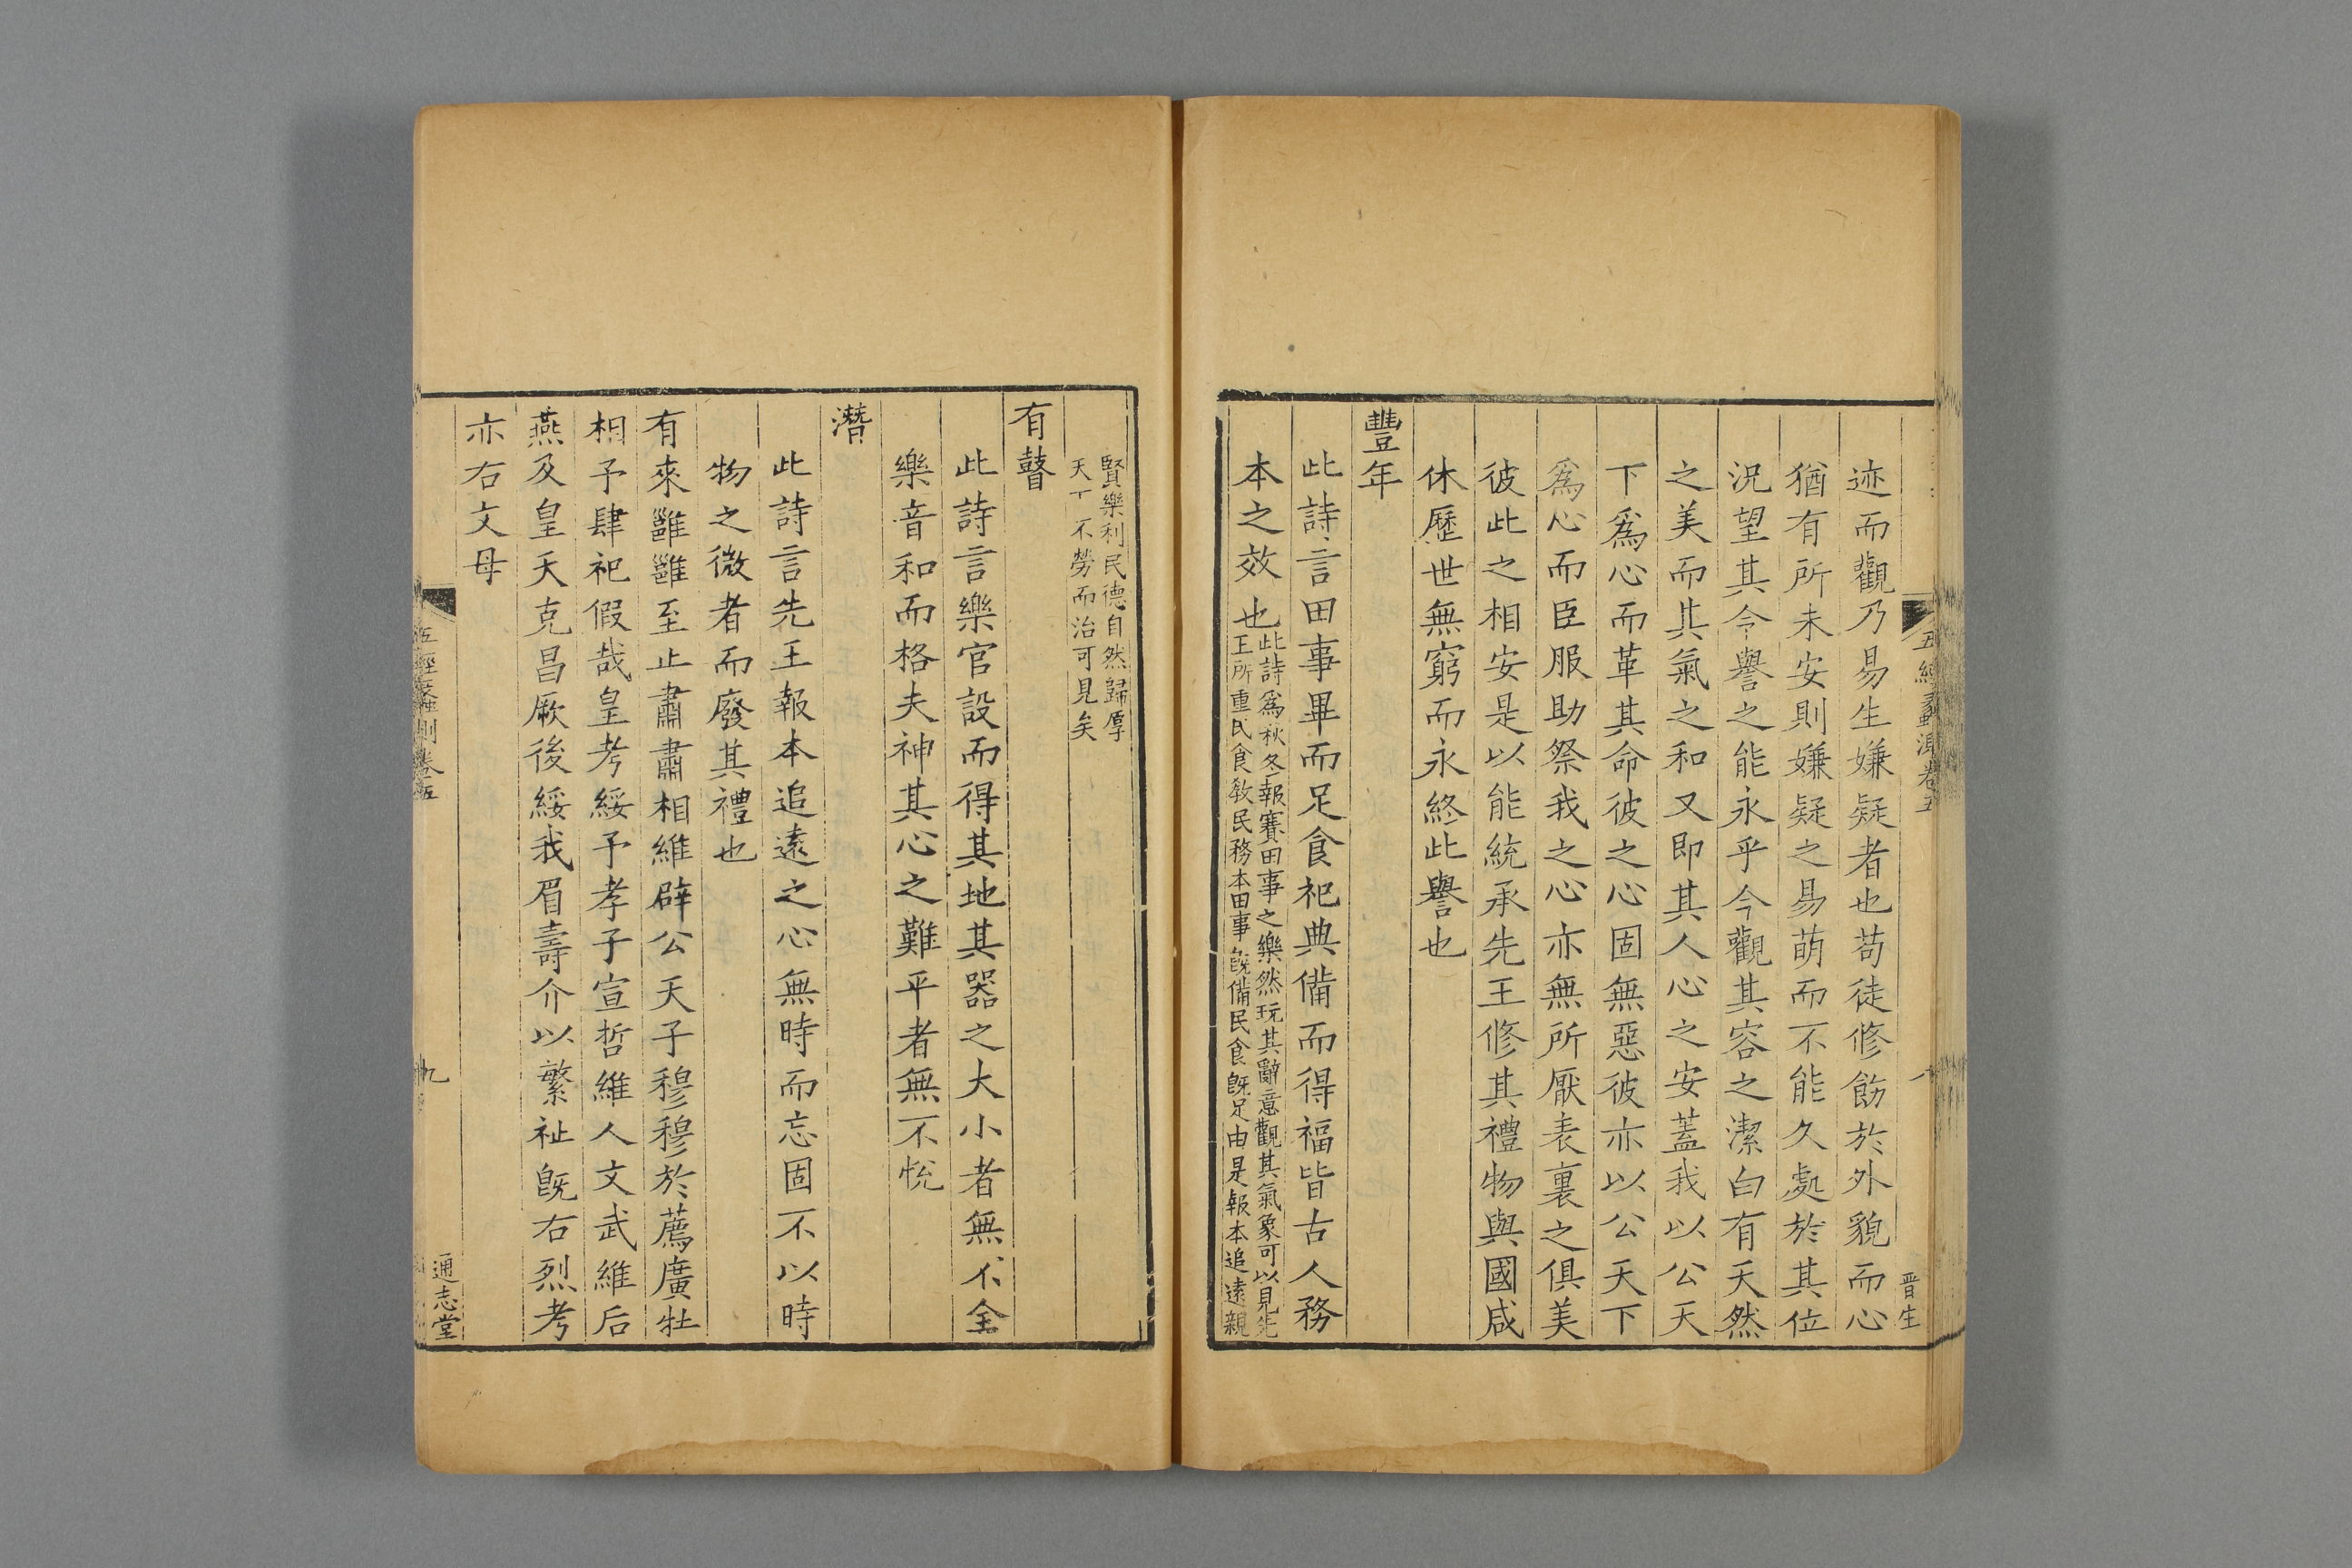 迹而觀乃易生嫌疑者也苟徒修飭於外貌而心
猶有所未安則嫌疑之易萌而不能久處於其位
況望其令譽之能永乎今觀其容之潔白有天然
之美而其氣之和又即其人心之安蓋我以公天
下爲心而革其命彼之心固無惡彼亦以公天下
爲心而臣服助祭我之心亦無所厭表裏之俱美
彼此之相安是以能統承先王修其禮物與國咸
休歷世無窮而永終此譽也
豐年
此詩言田事畢而足食祀典備而得福皆古人務
本之效也
此詩爲秋冬報賽田事之樂然玩其辭意觀其氣象可以見先
王所重民食敎民務本田事旣備民食旣足由是報本追遠親
晋生
賢樂利民德自然歸厚
天下不勞而治可見矣
有瞽
此詩言樂官設而得其地其器之大小者無不全
樂音和而格夫神其心之難平者無不悅
潛
此詩言先王報本追遠之心無時而忘固不以時
物之微者而廢其禮也
有來雝雝至止肅肅相維辟公天子穆穆於薦廣牡
相予肆祀假哉皇考綏予孝子宣哲維人文武維后
燕及皇天克昌厥後綏我眉壽介以繁祉旣右烈考
亦右文母
五經蠡測卷五
九
通志堂